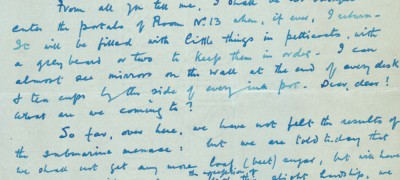 From all you tell me, I shall be
enter the portals of Room No. 13 when, if ever, I return.
It will be filled with little things in petticoats, with
a greybeard or two to keep them in order. I can
almost see mirrors on the wall at the end of every desk
& tea cups by the side of every ink pot. Dear, dear!
What are we coming to?
So far, over here, we have not felt the results of
the submarine menace: but we are told today that
we shall not get any more loaf (beet) sugar, but with
the exception of this slight hardship, we